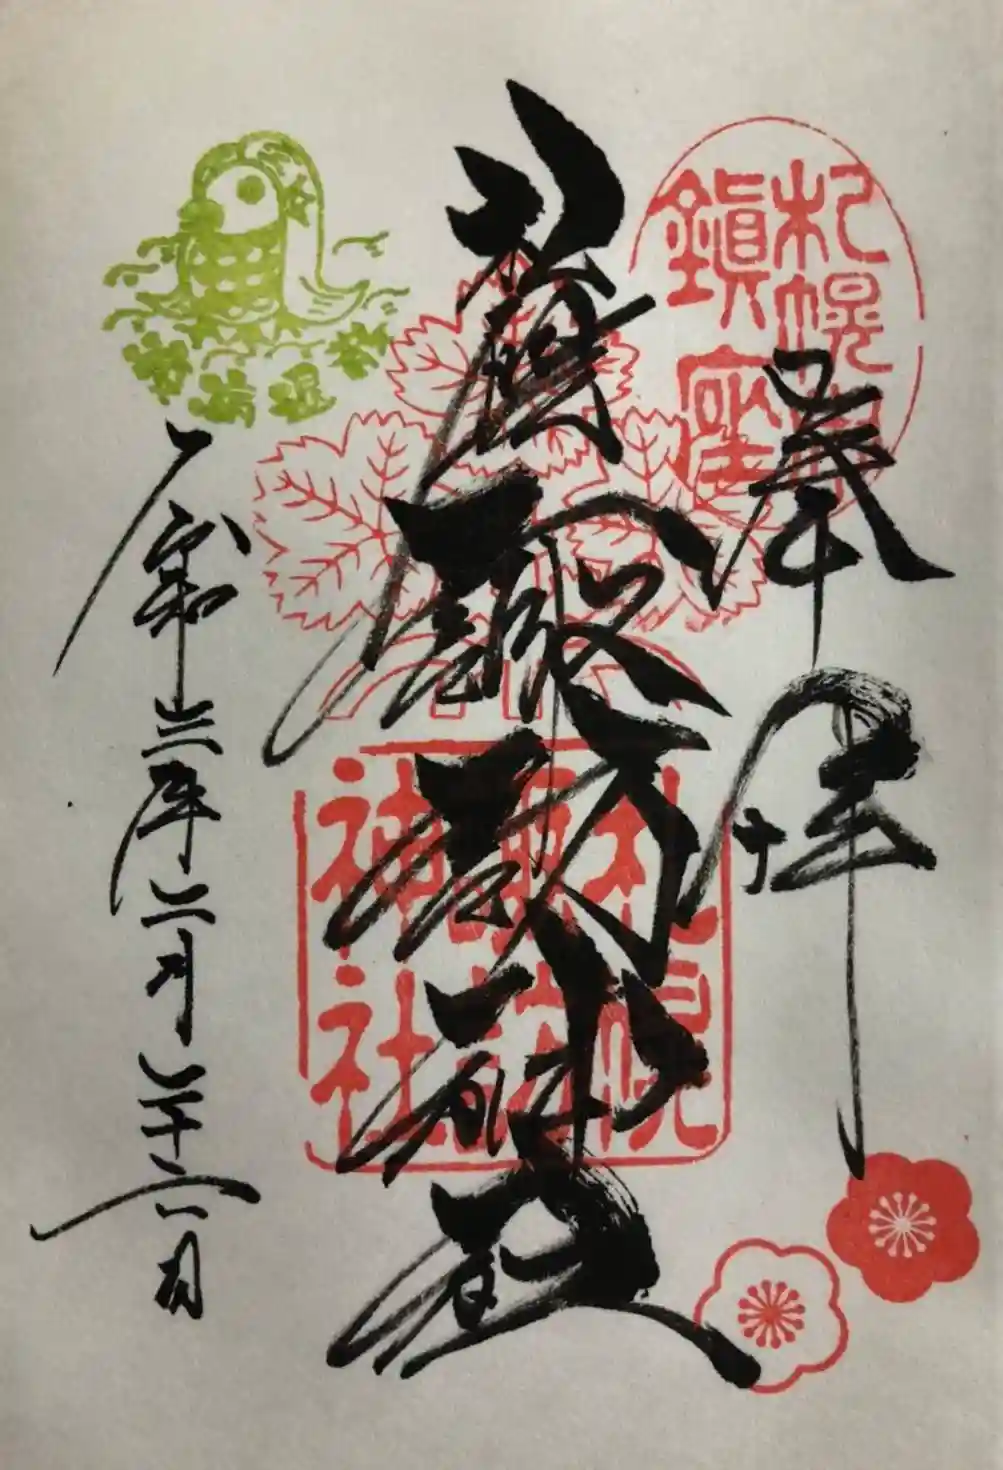 奉拝
札幌
鎮座
札幌諏訪神社
札幌
諏訪
神社
疫病退散
令和三年二月二十二日